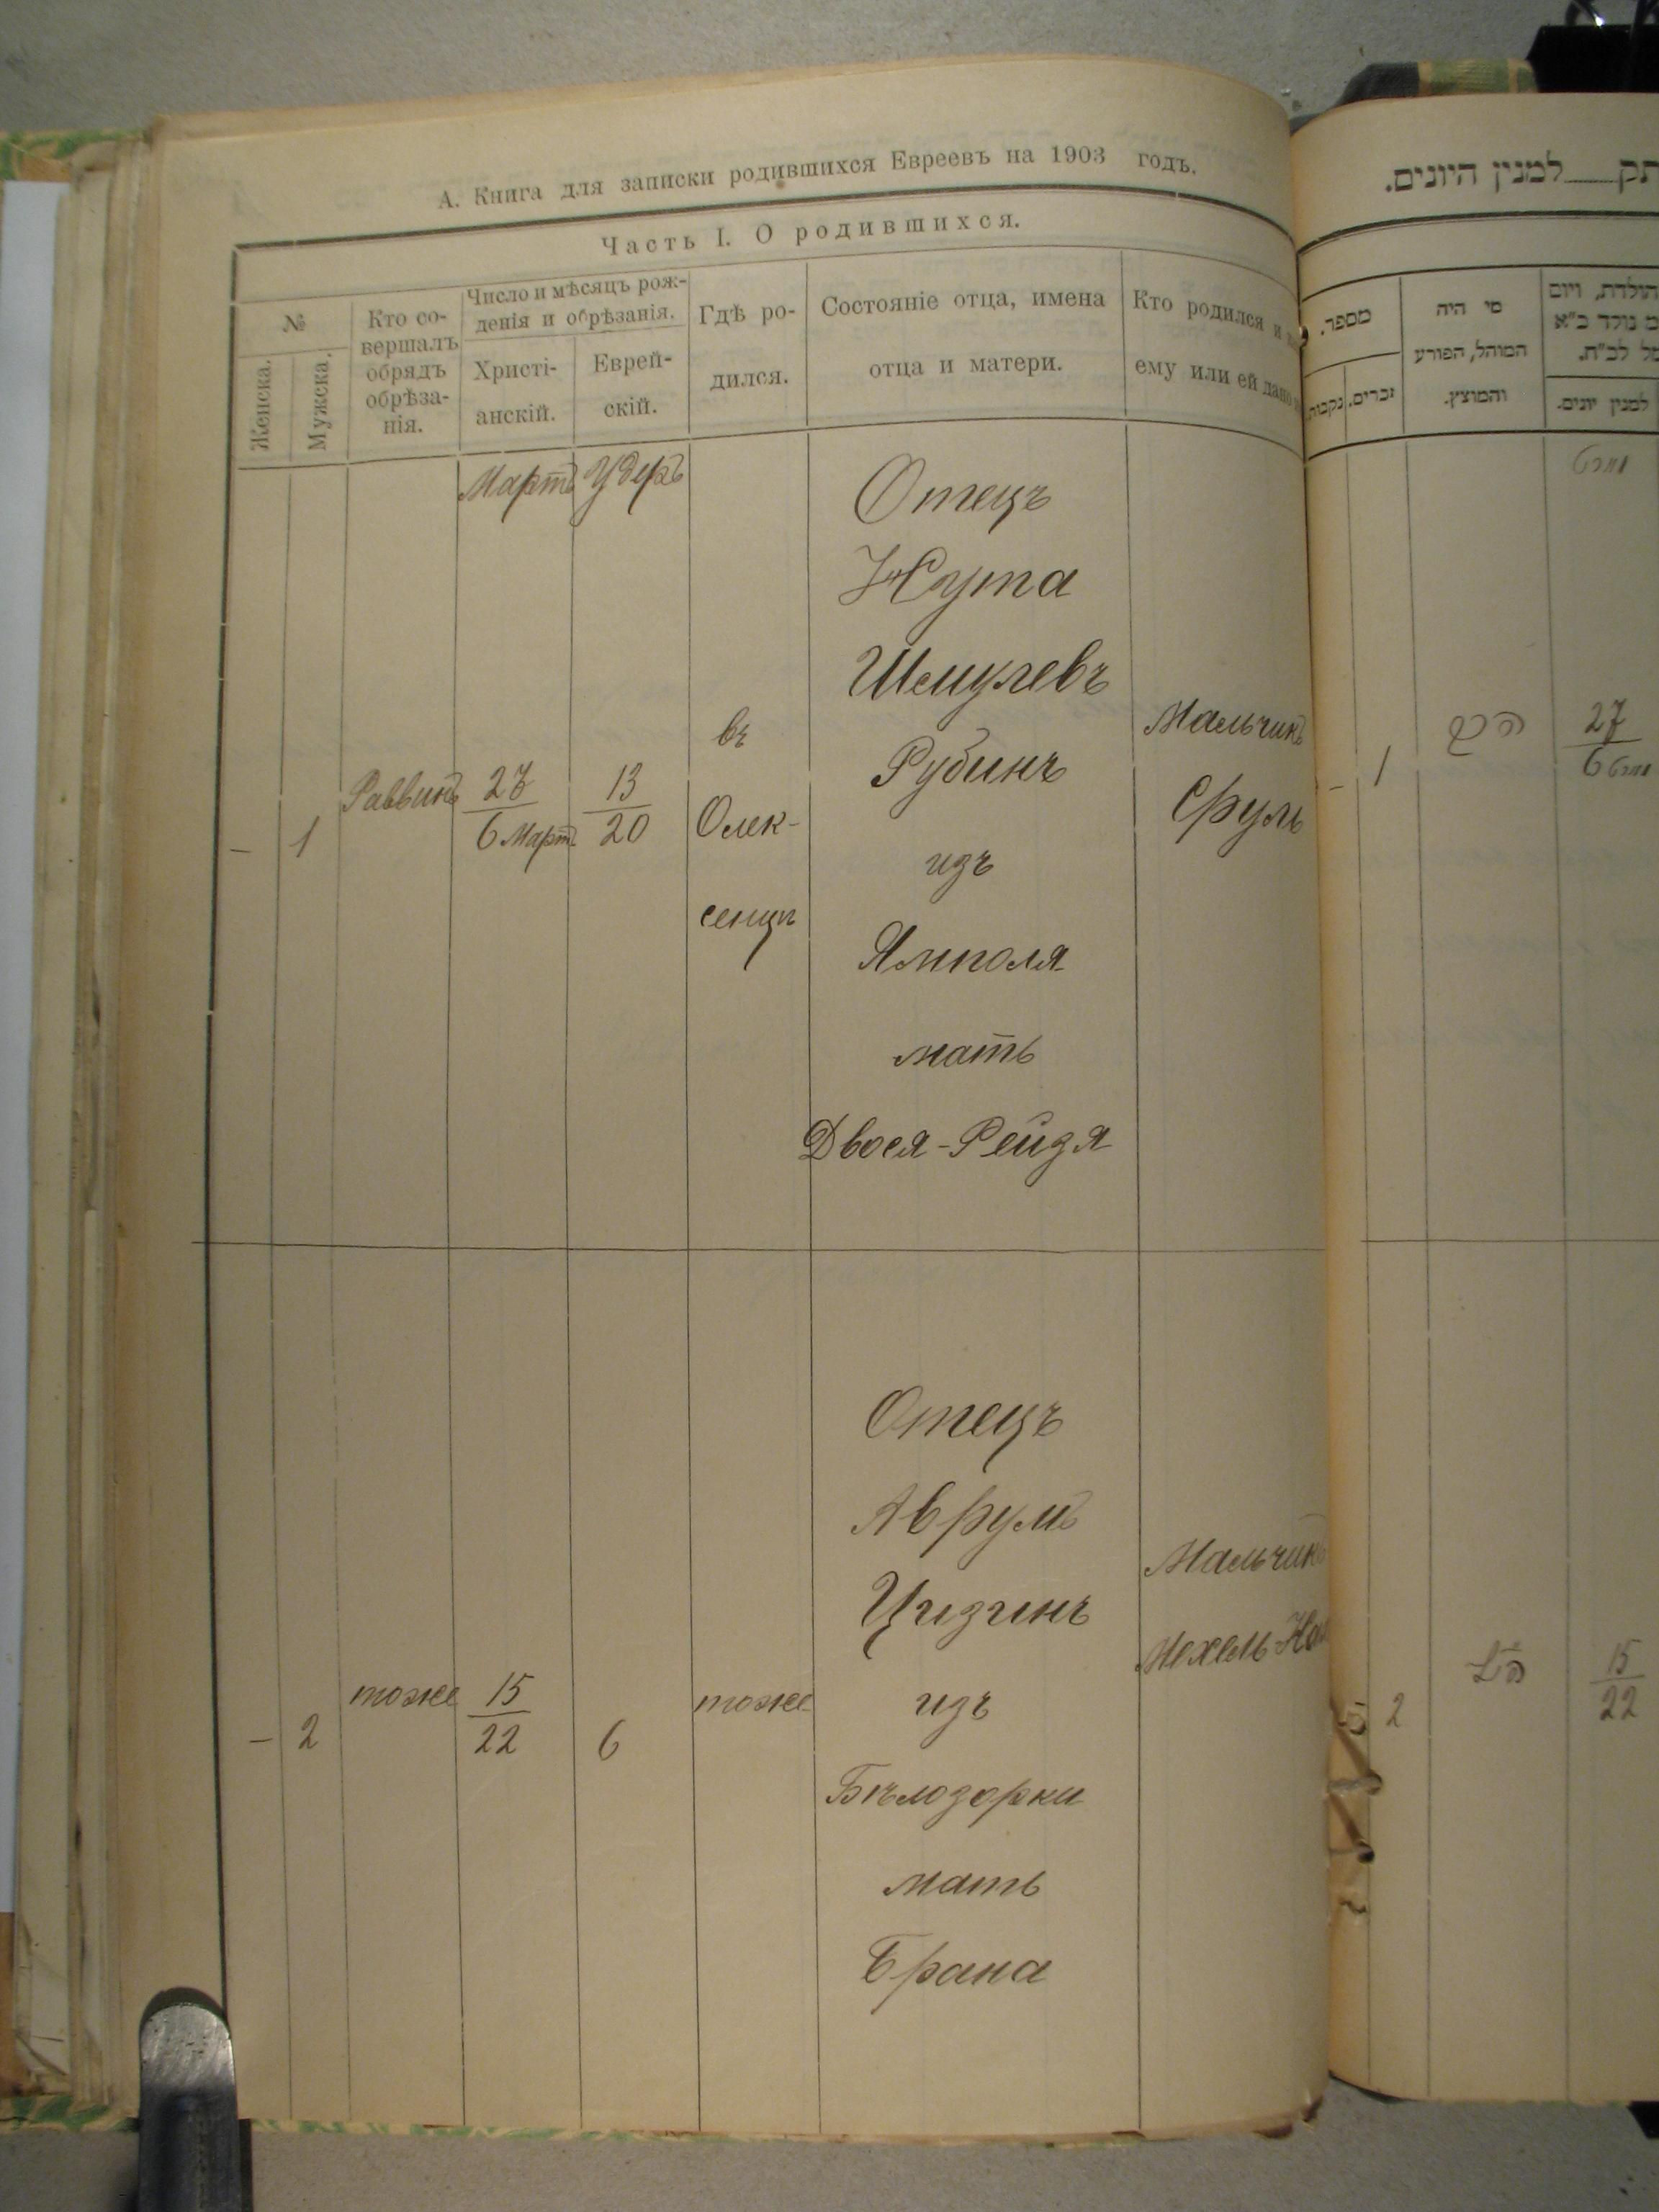 А. Книга для записки родившихся Евреевъ на 1903 годъ.
Часть I. О родившихся.
№
Женска.
Мужска.
Кто со-
вершалъ
обрядъ
обрѣза-
нія.
Число и мѣсяцъ рож-
денія и обрѣзанія.
Христі-
анскій.
Еврей-
скій.
Гдѣ ро-
дился.
Состояніе отца, имена
отца и матери.
Кто родился и
ему или ей дано
Мартъ
Удеръ
– 1
Раввинъ
27
6 Март
13
20
въ
Олек-
сенцѣ
Отецъ
Нута
Шмулевъ
Рубинъ
изъ
Ямполя
мать
Двося-Рейзя
Мальчикъ
Сруль
– 2
тоже
15
22
6
тоже
Отецъ
Аврумъ
Цизинъ
изъ
Бѣлозорки
мать
Брана
Мальчикъ
Мехель-
למנין היונים.
מספר.
זכרים.
מי היה
המוהל, הפורע
והמוצץ.
הולדת, ויום
נולד כ"א
למנין יונים.
– 1
27
6
2
15
22